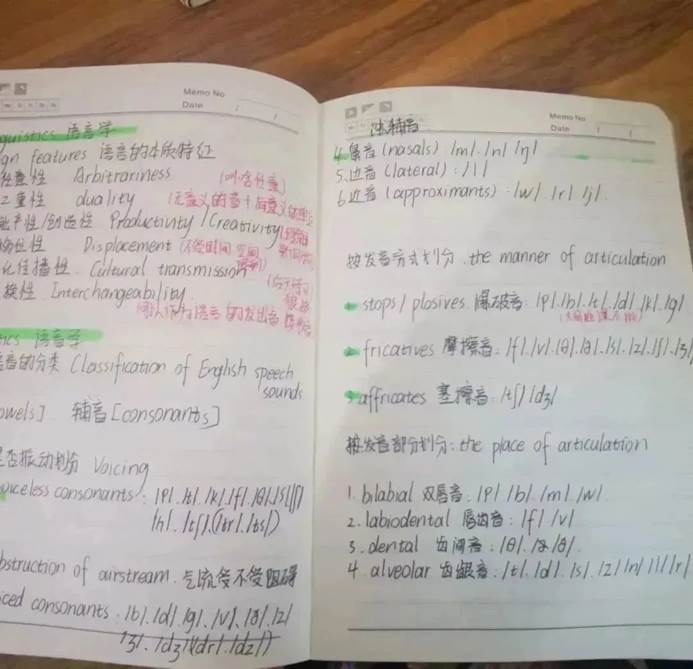 Memo No
Date / /
guistics 语言学
gn features 语言的本质特征
任意性 Arbitrariness (叫啥任意)
二重性 duality
能产性/创造性 Productivity/Creativity
移位性 Displacement
化传播性 Cultural transmission
换性 Interchangeability
ics 语音学
语音的分类 Classification of English speech
sounds
owels] 辅音[consonants]
是否振动划分 Voicing
voiceless consonants: /p/./t/./k/./f/./θ/./s/./ʃ/
/h/./tʃ/.(/tr/./ts/)
bstruction of airstream. 气流受不受阻碍
iced consonants: /b/./d/./g/./v/./ð/./z/
/ʒ/./dʒ/(/dr/./dz/)
Memo No
Date / /
辅音
4.鼻音(nasals) /m/./n/ /ŋ/
5.边音(lateral): /l/
6.近音(approximants): /w/ /r/ /j/.
按发音方式划分. the manner of articulation
stops/plosives. 爆破音: /p/./b/./t/./d/./k/./g/
2. fricatives 摩擦音: /f/./v/./θ/./ð/./s/./z/./ʃ/./ʒ/
3. affricates 塞擦音: /tʃ/ /dʒ/
按发音部分划分: the place of articulation
1. bilabial 双唇音. /p/ /b/ /m/ /w/
2. labiodental 唇齿音: /f/ /v/
3. dental 齿间音: /θ/. /ð/
4. alveolar 齿龈音: /t/. /d/. /s/. /z/ /n/ /l/ /r/